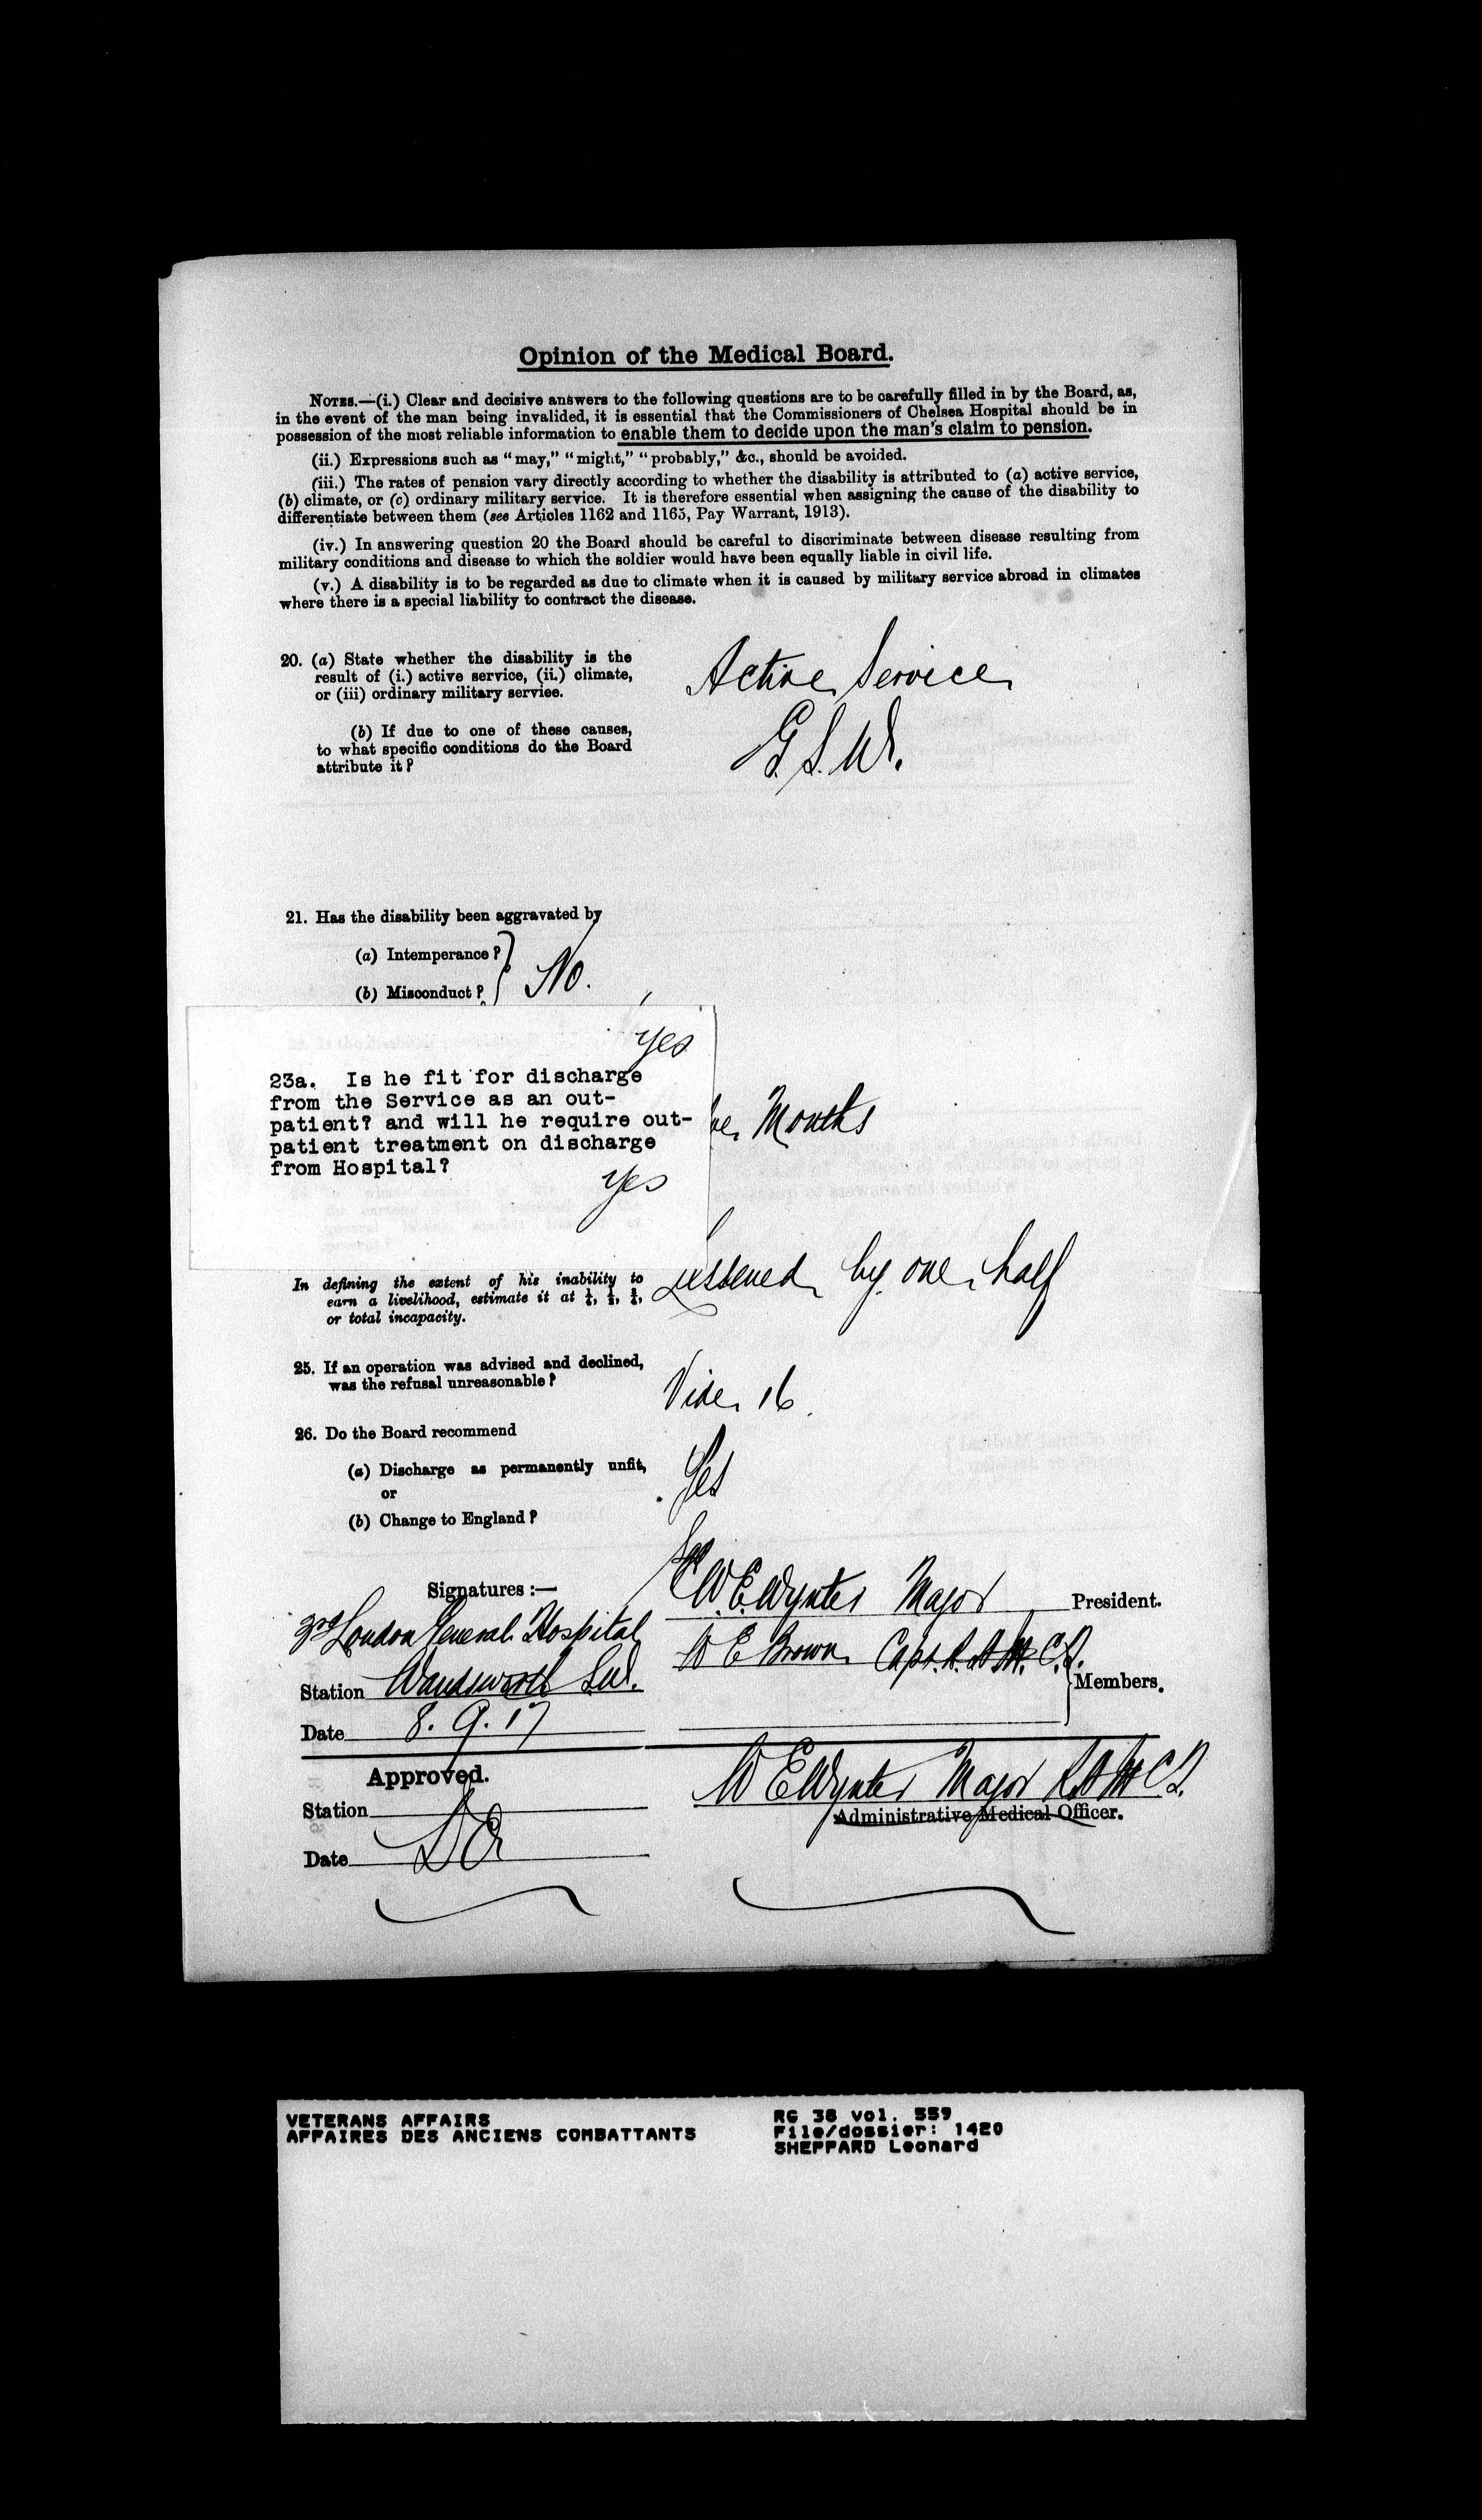 Opinion of the Medical Board.
NOTES.—(i.) Clear and decisive answers to the following questions are to be carefully filled in by the Board, as,
in the event of the man being invalided, it is essential that the Commissioners of Chelsea Hospital should be in
possession of the most reliable information to enable them to decide upon the man's claim to pension.
(ii.) Expressions such as "may," "might," "probably," &c., should be avoided.
(iii.) The rates of pension vary directly according to whether the disability is attributed to (a) active service,
(b) climate, or (c) ordinary military service. It is therefore essential when assigning the cause of the disability to
differentiate between them (see Articles 1162 and 1165, Pay Warrant, 1913).
(iv.) In answering question 20 the Board should be careful to discriminate between disease resulting from
military conditions and disease to which the soldier would have been equally liable in civil life.
(v.) A disability is to be regarded as due to climate when it is caused by military service abroad in climates
where there is a special liability to contract the disease.
20. (a) State whether the disability is the
result of (i.) active service, (ii.) climate,
or (iii) ordinary military service.
Active Service
(b) If due to one of these causes,
to what specific conditions do the Board
attribute it?
G.S.W.
21. Has the disability been aggravated by
(a) Intemperance?
(b) Misconduct?
No.
yes
23a. Is he fit for discharge
from the Service as an out-
patient? and will he require out-
patient treatment on discharge
from Hospital?
yes
ve Months
In defining the extent of his inability to
earn a livelihood, estimate it at ¼, ½, ¾,
or total incapacity.
Lessened by one half
25. If an operation was advised and declined,
was the refusal unreasonable?
Vide 16.
26. Do the Board recommend
(a) Discharge as permanently unfit,
or
Yes
(b) Change to England?
Signatures:—
W.E. Wynter Major President.
3rd London General Hospital
W E Brown Capt. R.A.M.C.T.
Station Wandsworth S.W.
Members.
Date 8.9.17
Approved.
W E Wynter Major R A M C T.
Station
Administrative Medical Officer.
Date
VETERANS AFFAIRS
AFFAIRES DES ANCIENS COMBATTANTS
RG 38 Vol. 559
File/dossier: 1420
SHEPPARD Leonard